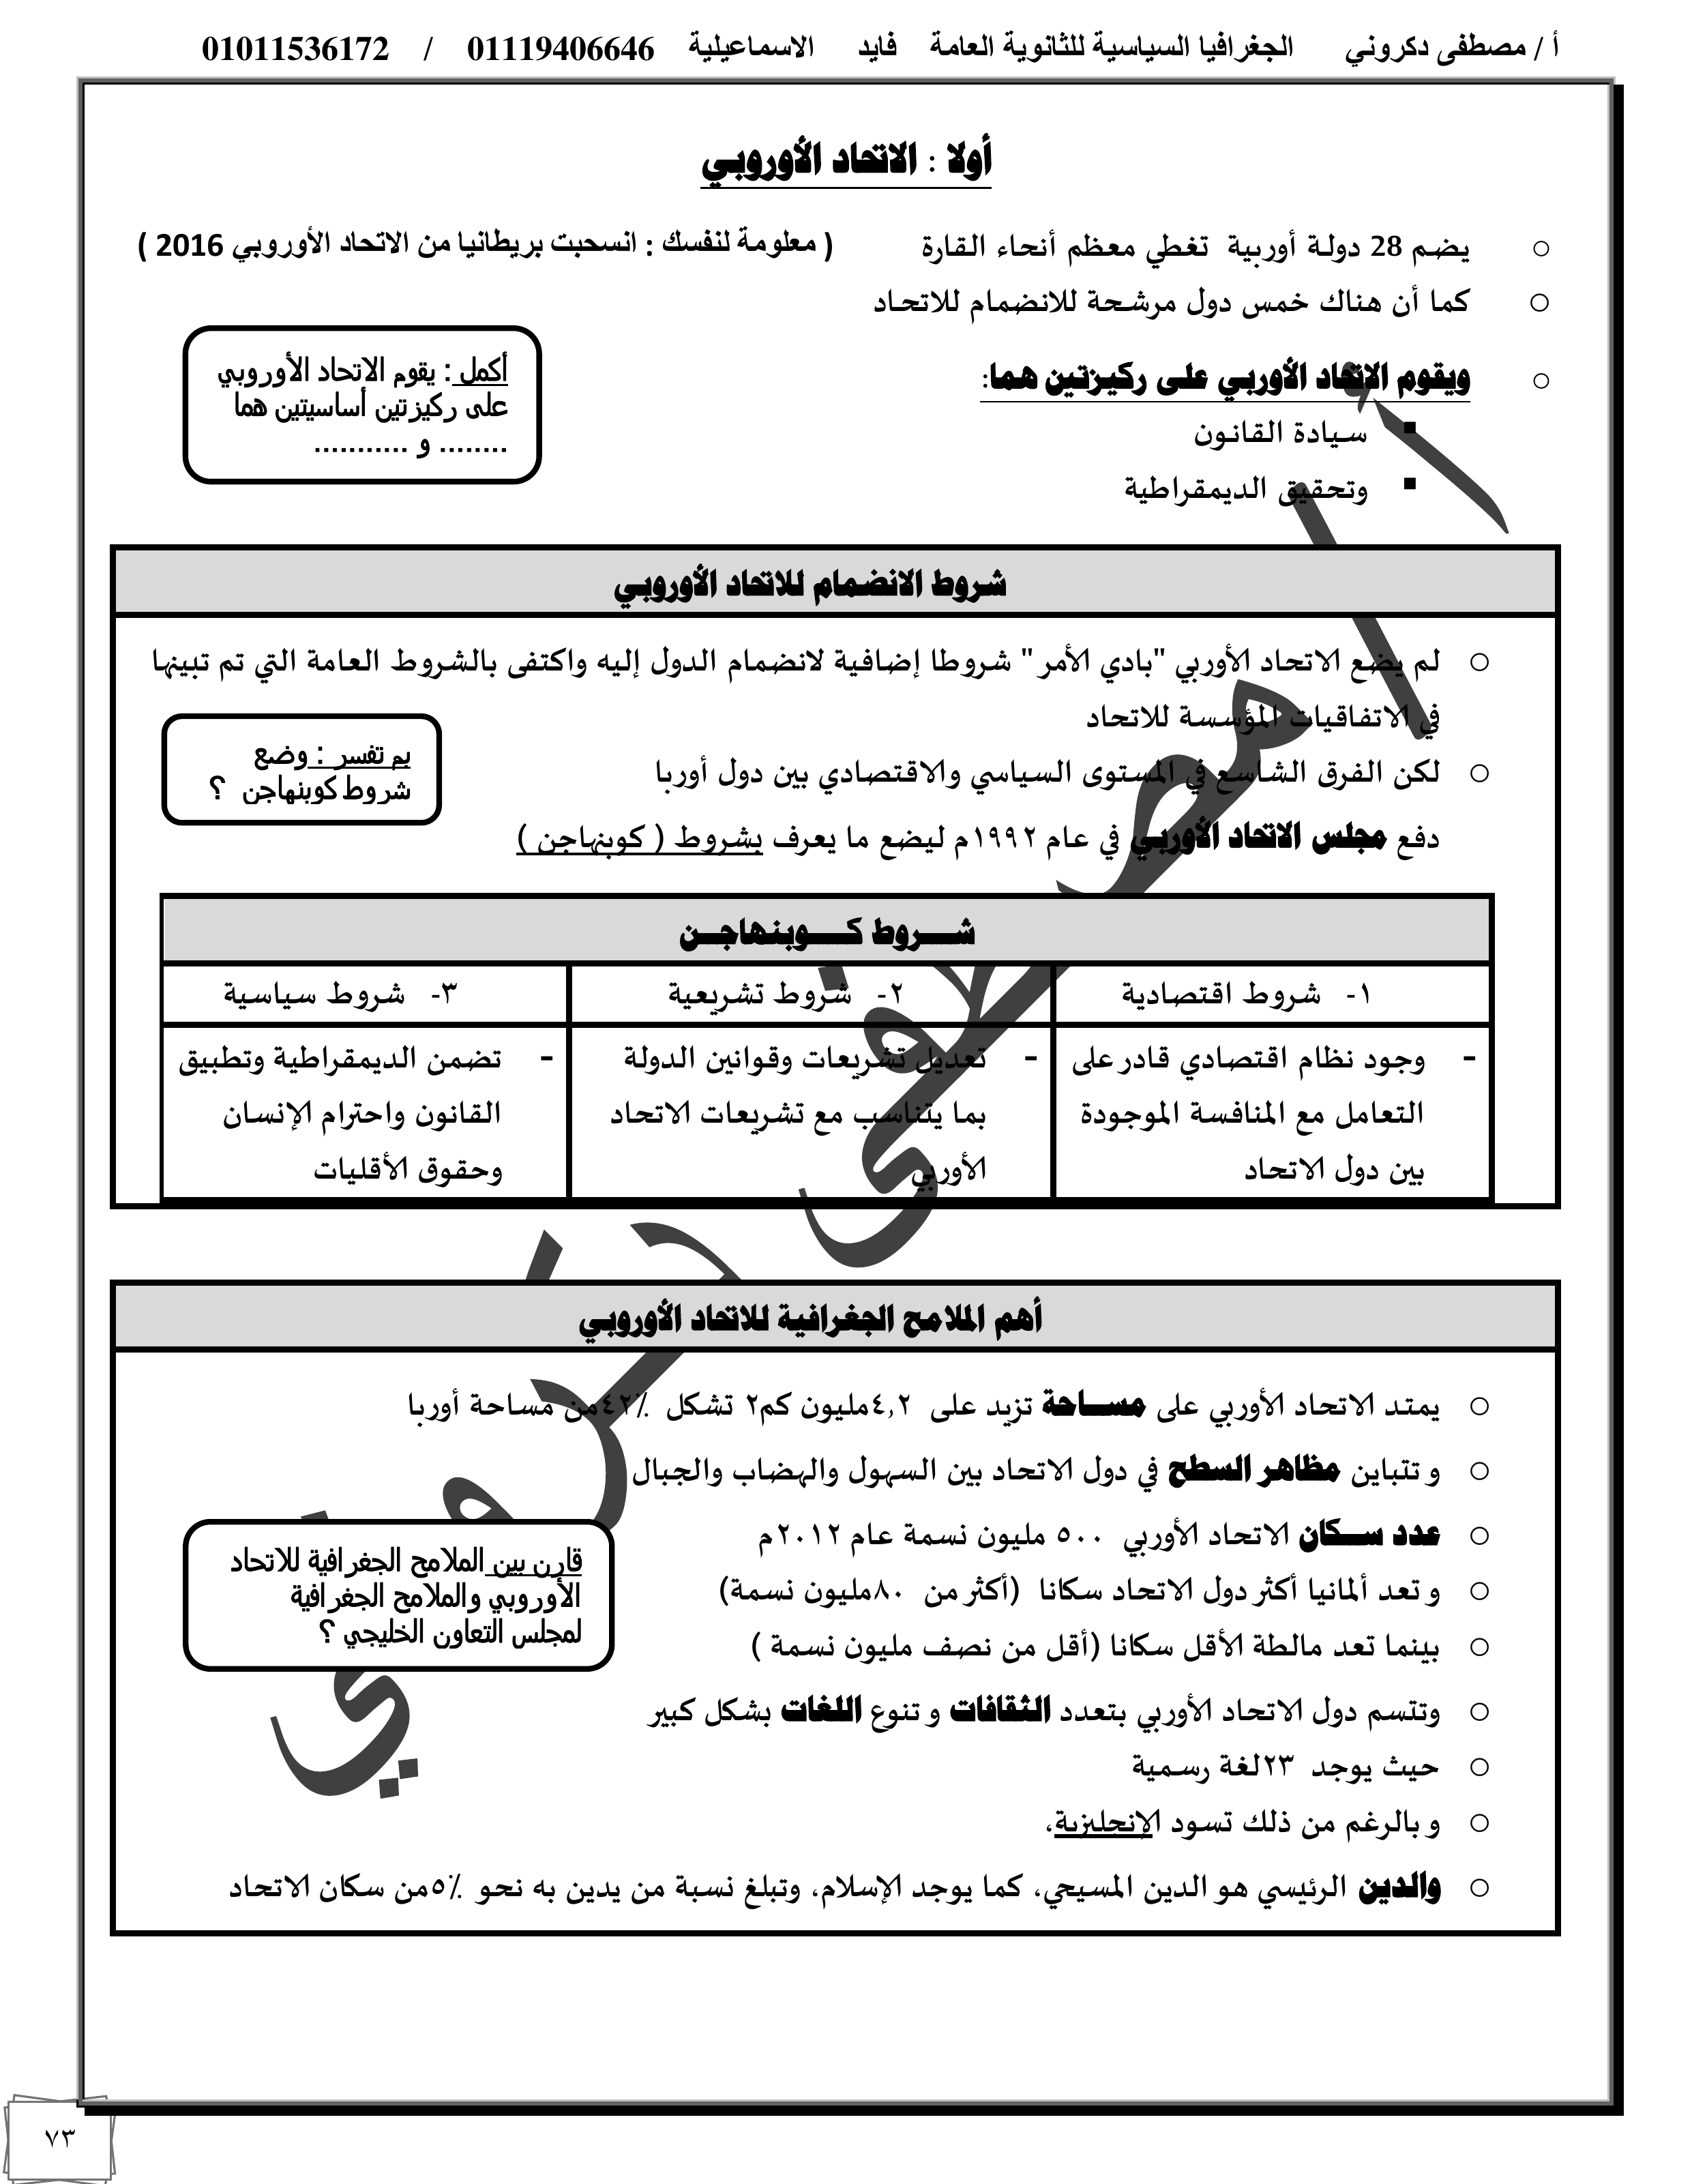 أ / مصطفى دكروني الجغرافيا السياسية للثانوية العامة فايد الاسماعيلية 01119406646 / 01011536172
أولا : الاتحاد الأوروبي
○ يضم 28 دولة أوربية تغطي معظم أنحاء القارة ( معلومة لنفسك : انسحبت بريطانيا من الاتحاد الأوروبي 2016 )
○ كما أن هناك خمس دول مرشحة للانضمام للاتحاد
○ ويقوم الاتحاد الأوربي على ركيزتين هما:
▪ سيادة القانون
▪ وتحقيق الديمقراطية
أكمل : يقوم الاتحاد الأوروبي
على ركيزتين أساسيتين هما
........ و ...........
شروط الانضمام للاتحاد الأوروبي
○ لم يضع الاتحاد الأوربي "بادي الأمر" شروطا إضافية لانضمام الدول إليه واكتفى بالشروط العامة التي تم تبينها
في الاتفاقيات المؤسسة للاتحاد
○ لكن الفرق الشاسع في المستوى السياسي والاقتصادي بين دول أوربا
دفع مجلس الاتحاد الأوربي في عام ١٩٩٢م ليضع ما يعرف بشروط ( كوبنهاجن )
بم تفسر : وضع
شروط كوبنهاجن ؟
شـــروط كــــوبنهاجــن
١- شروط اقتصادية
٢- شروط تشريعية
٣- شروط سياسية
- وجود نظام اقتصادي قادر على
التعامل مع المنافسة الموجودة
بين دول الاتحاد
- تعديل تشريعات وقوانين الدولة
بما يتناسب مع تشريعات الاتحاد
الأوربي
- تضمن الديمقراطية وتطبيق
القانون واحترام الإنسان
وحقوق الأقليات
أهم الملامح الجغرافية للاتحاد الأوروبي
○ يمتد الاتحاد الأوربي على مســاحة تزيد على ٤,٢مليون كم٢ تشكل ٪٤٢من مساحة أوربا
○ وتتباين مظاهر السطح في دول الاتحاد بين السهول والهضاب والجبال
○ عدد ســكان الاتحاد الأوربي ٥٠٠ مليون نسمة عام ٢٠١٢م
○ وتعد ألمانيا أكثر دول الاتحاد سكانا (أكثر من ٨٠مليون نسمة)
○ بينما تعد مالطة الأقل سكانا (أقل من نصف مليون نسمة )
قارن بين الملامح الجغرافية للاتحاد
الأوروبي والملامح الجغرافية
لمجلس التعاون الخليجي ؟
○ وتتسم دول الاتحاد الأوربي بتعدد الثقافات وتنوع اللغات بشكل كبير
○ حيث يوجد ٢٣لغة رسمية
○ وبالرغم من ذلك تسود الإنجليزية،
○ والدين الرئيسي هو الدين المسيحي، كما يوجد الإسلام، وتبلغ نسبة من يدين به نحو ٪٥من سكان الاتحاد
أ / مصطفى دكروني
٧٣